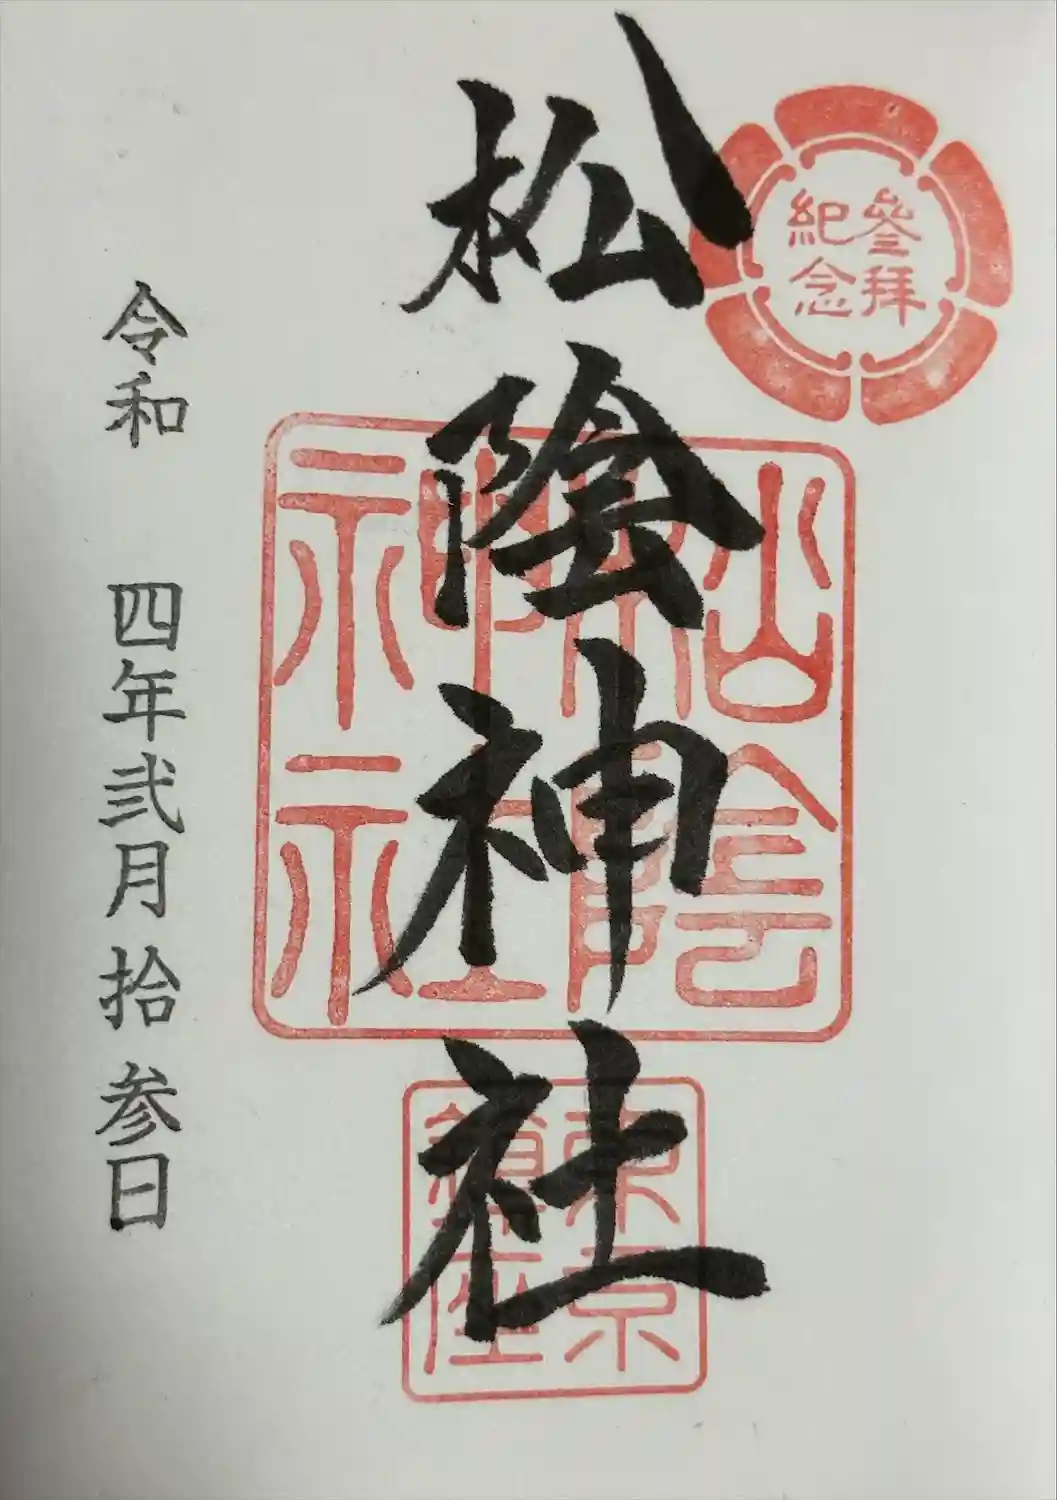 參拜
紀念
松陰神社
松陰
神社
東京
鎮座
令和 四年弐月拾参日